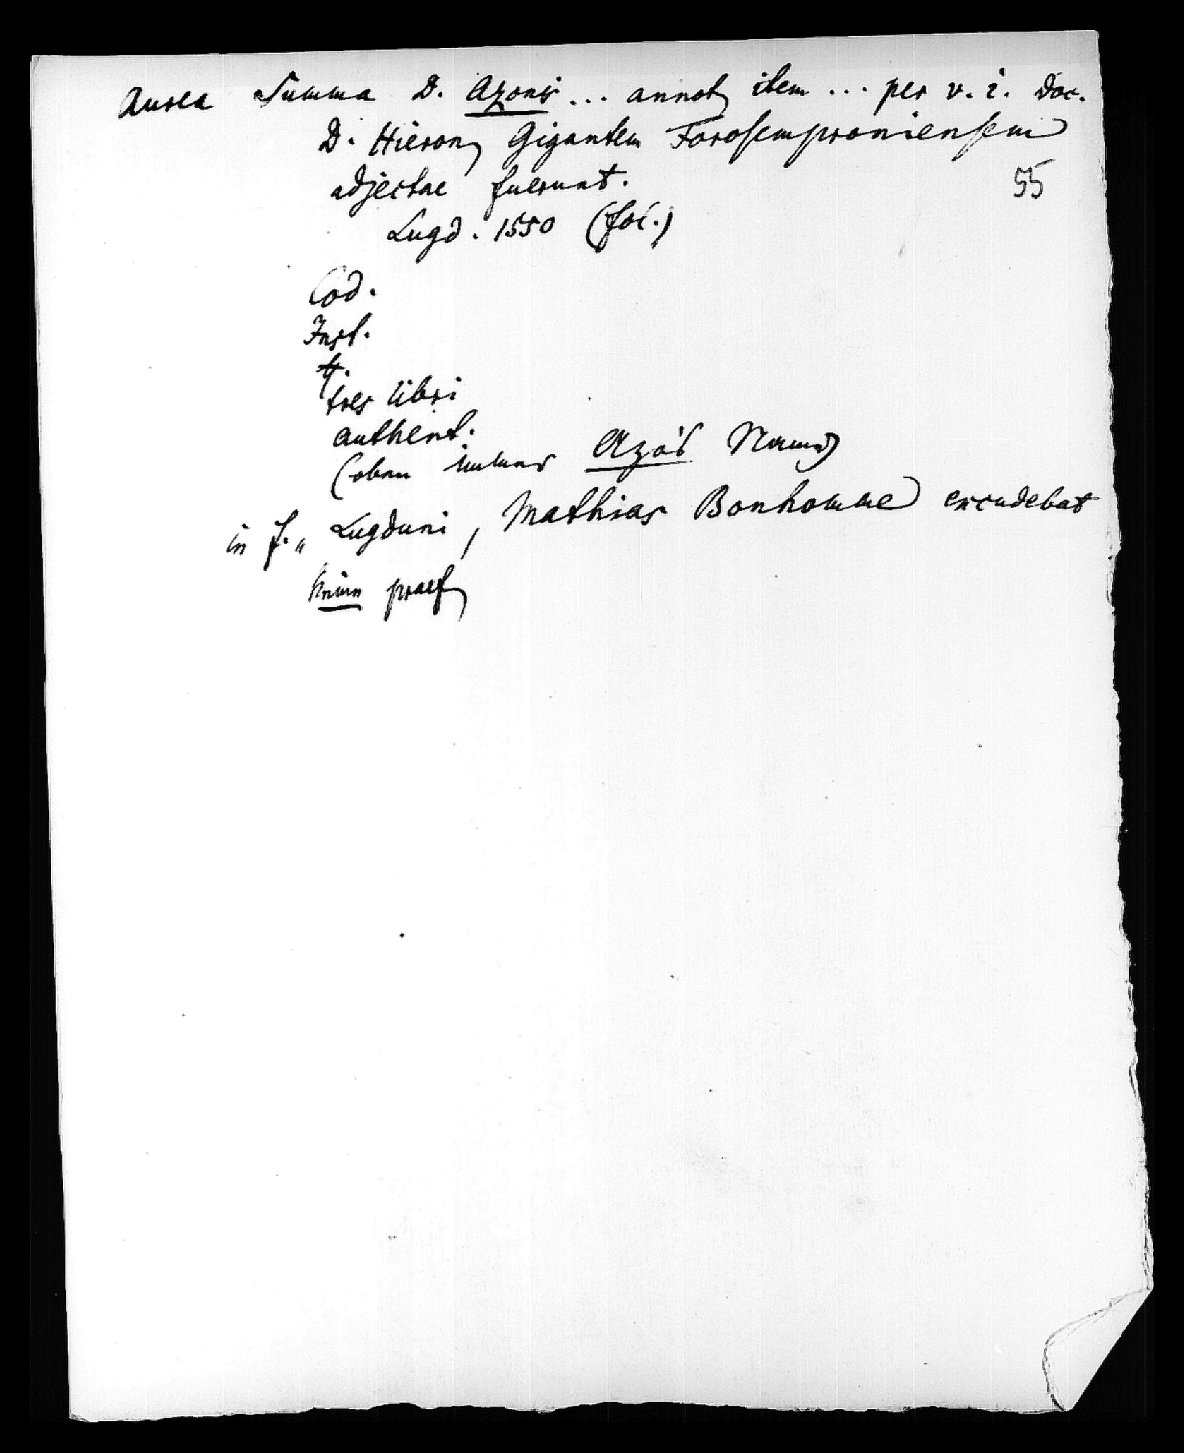 Aurea Summa D. Azonis ... annot item ... per v. i. Doc.
D. Hieron Gigantem Forosemproniensem
adjectae fuerunt.
55
Lugd. 1550 (fol.)
Cod.
Inst.
ff.
tres libri
authent.
(oben immer Azo's Name)
in f. „ Lugduni, Mathias Bonhomme excudebat
Keine praef